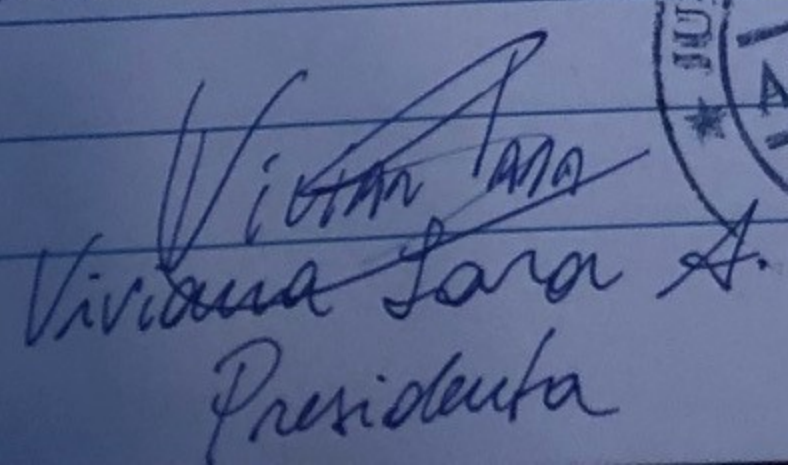 Vivian Lara
Viviana Lara A.
Presidenta
JU
A